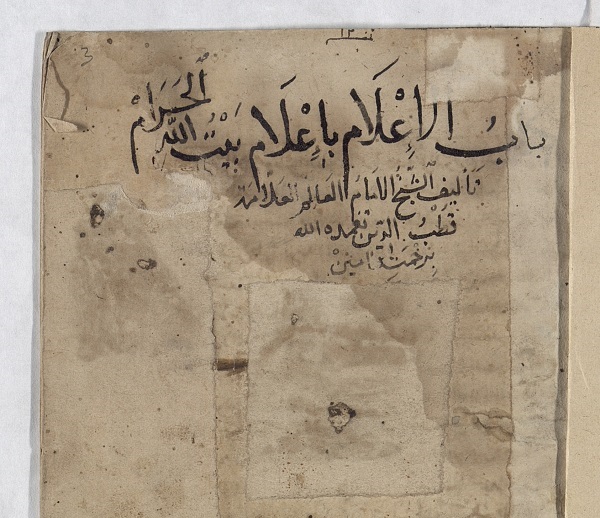 3
١٣
باب الإِعْلَام بإِعْلَام بَيْتُ اللّه الحَرَامْ
تأليف الشيخُ الامَام العَالم العَلامَة
قطْبُ الدّين تغمده الله
برَحْمَتِهِ امينْ